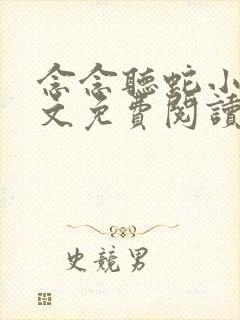 念念聽蛇小
文免費閱讀
史競男